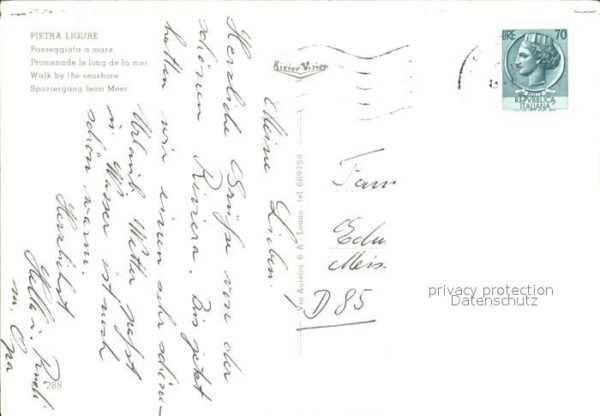 PIETRA LIGURE
Passeggiata a mare
Promenade le long de la mer
Walk by the seashore
Spaziergang beim Meer
Meine Lieben!
Herzliche Grüße von der
schönen Riviera. Bis jetzt
hatten wir einen sehr schönen
Urlaub. Wetter passt
u. Wasser ist noch
schön warm.
Herzlichst
Hella u. Rudi
288
Via Aurelia, 6 A - Loano - tel. 669759
LIRE 70
REPVBBLICA
ITALIANA
Fam
Edu
Meis
D 85
privacy protection
Datenschutz